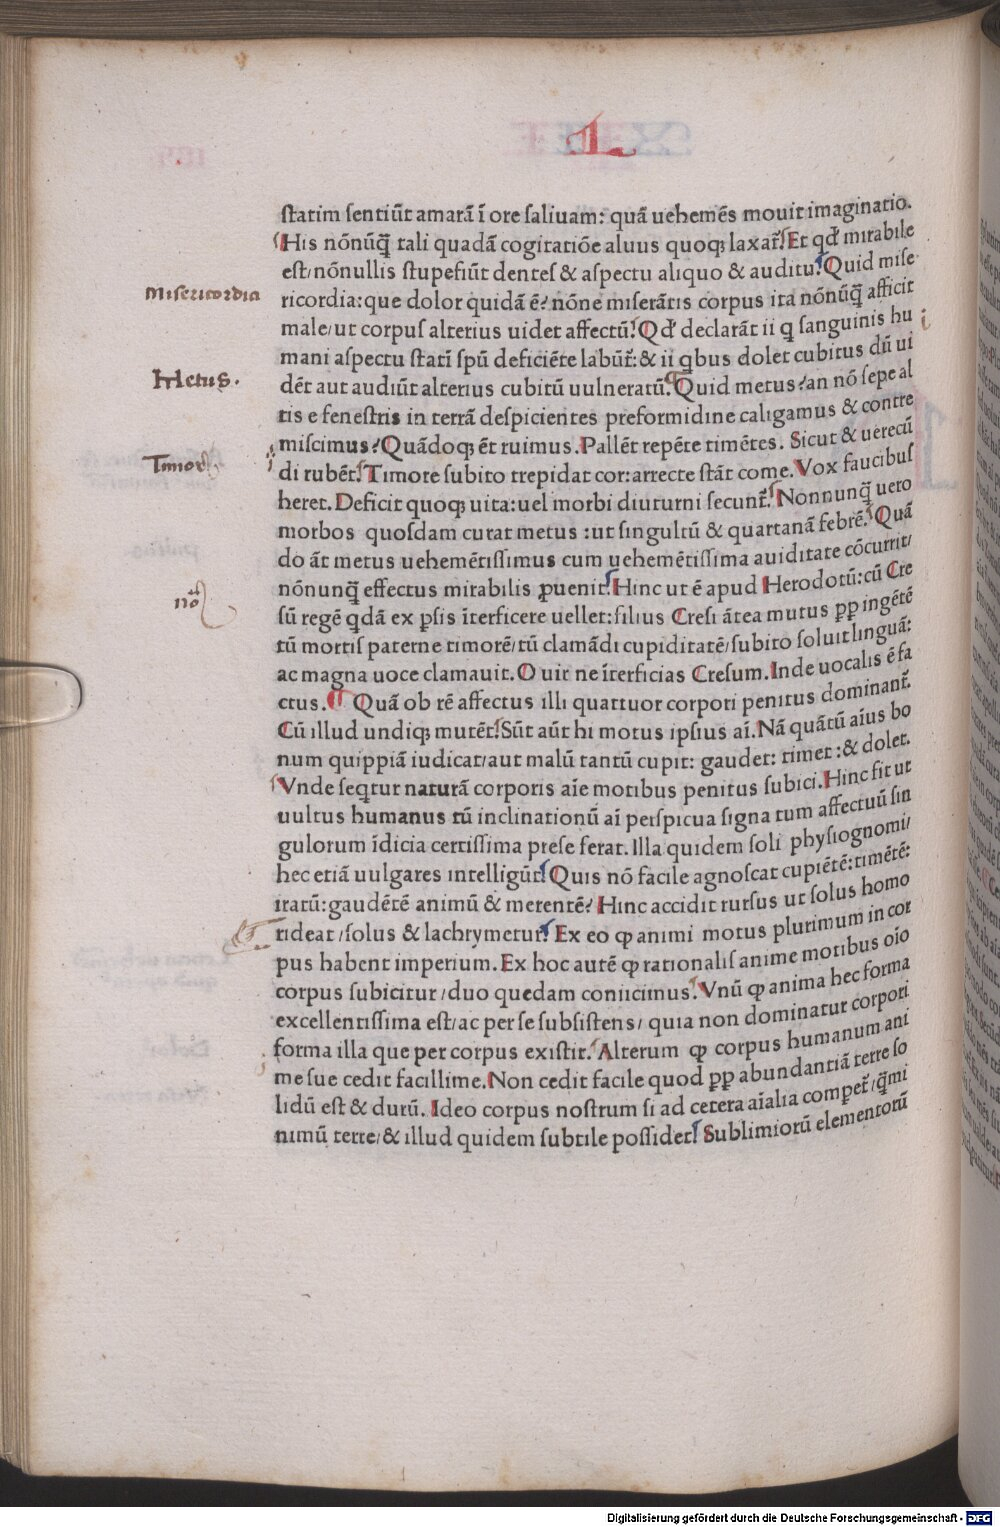 L
ſtatim ſentiūt amarā ī ore ſaliuam: quā uehemēs mouit imaginatio.
His nōnūq̄ tali quadā cogitatiōe aluus quoqꝫ laxat̄. Et qđ mirabile
eſt/nōnullis ſtupefiūt denteſ & aſpectu aliquo & auditu. Quid miſe
Miſericordia
ricordia: que dolor quidā ē? nōne miſerātis corpus ita nōnūq̄ afficit
male/ut corpuſ alterius uidet affectū? Qđ declarāt ii q ſanguinis hu
mani aſpectu ſtatī ſpū deficiēte labūt̄: & ii qbus dolet cubitus dū ui
Metus.
dēt aut audiūt alterius cubitū uulneratū. Quid metus? an nō ſepe al
tis e feneſtris in terrā deſpicientes preformidine caligamus & contre
miſcimus? Quādoqꝫ ēt ruimus. Pallēt repēte timētes. Sicut & uerecū
Timor
di rubēt. Timore ſubito trepidat cor: arrecte ſtāt come. Vox faucibuſ
heret. Deficit quoqꝫ uita: uel morbi diuturni ſecunt̄. Nonnunq̄ uero
morbos quoſdam curat metus : ut ſingultū & quartanā febrē. Quā
do āt metus uehemētiſſimus cum uehemētiſſima auiditate cōcurrit/
nōnunq̄ effectus mirabilis ꝓuenit. Hinc ut ē apud Herodotū: cū Cre
nō
ſū regē qdā ex ꝑſis īterficere uellet: filius Creſi ātea mutus ꝓp ingētē
tū mortiſ paterne timorē/tū clamādi cupiditatē/ſubito ſoluit linguā:
ac magna uoce clamauit. O uir ne īterficias Creſum. Inde uocalis ē fa
ctus. Quā ob rē affectus illi quattuor corpori penitus dominant̄.
Cū illud undiqꝫ mutēt. Sūt aūt hi motus ipſius aī. Nā quātū aīus bo
num quippiā iudicat/aut malū tantū cupit: gaudet: timet: & dolet.
Vnde ſeqtur naturā corporis aīe motibus penitus ſubici. Hinc fit ut
uultus humanus tū inclinationū aī perſpicua ſigna tum affectuū ſin
gulorum īdicia certiſſima preſe ferat. Illa quidem ſoli phyſiognomi/
hec etiā uulgares intelligūt. Quis nō facile agnoſcat cupiētē: timētē:
iratū: gaudētē animū & merentē? Hinc accidit rurſus ut ſolus homo
rideat/ſolus & lachrymetur. Ex eo ꝙ animi motus plurimum in cor
pus habent imperium. Ex hoc autē ꝙ rationaliſ anime motibus oīo
corpus ſubicitur/duo quedam coniicimus. Vnū ꝙ anima hec forma
excellentiſſima eſt/ac per ſe ſubſiſtens/ quia non dominatur corpori
forma illa que per corpus exiſtit. Alterum ꝙ corpus humanum ani
me ſue cedit facillime. Non cedit facile quod ꝓp abundantiā terre ſo
lidū eſt & durū. Ideo corpus noſtrum ſi ad cetera aīalia comꝑet̄/q̄mi
nimū terre/& illud quidem ſubtile poſſidet. Sublimiorū elementorū
Digitalisierung gefördert durch die Deutsche Forschungsgemeinschaft - DFG